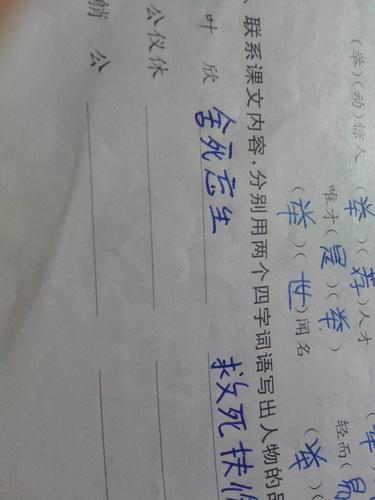 (举)(动)惊人 (举)(荐)人才
唯才(是)(举) 轻而(易
(举)(世)闻名 (举)
、联系课文内容,分别用两个四字词语写出人物的
叶 欣 舍死忘生 救死扶
公仪休
艄 公